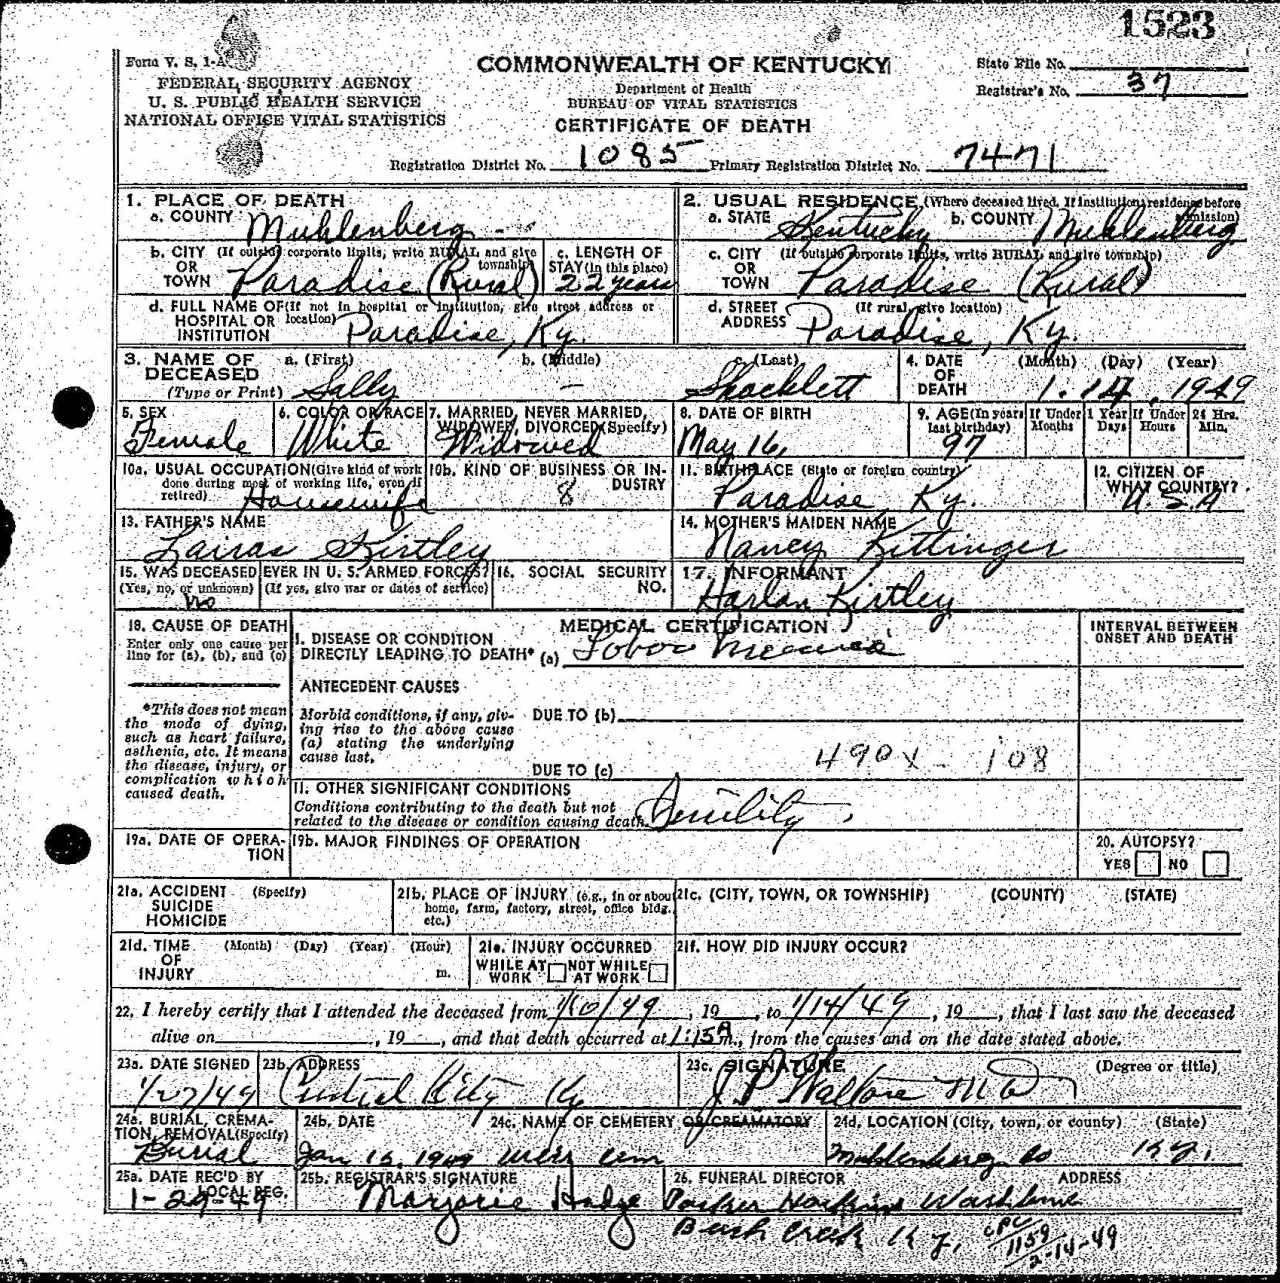 1523
Form V. S. 1-A
FEDERAL SECURITY AGENCY
U. S. PUBLIC HEALTH SERVICE
NATIONAL OFFICE VITAL STATISTICS
COMMONWEALTH OF KENTUCKY
Department of Health
BUREAU OF VITAL STATISTICS
CERTIFICATE OF DEATH
State File No.
Registrar's No. 37
Registration District No. 1085 Primary Registration District No. 7471
1. PLACE OF DEATH
a. COUNTY Muhlenberg
2. USUAL RESIDENCE (Where deceased lived. If institution: residence before admission)
a. STATE Kentucky b. COUNTY Muhlenberg
b. CITY (If outside corporate limits, write RURAL and give township) OR TOWN Paradise (Rural)
c. LENGTH OF STAY (in this place) 22 years
c. CITY (If outside corporate limits, write RURAL and give township) OR TOWN Paradise (Rural)
d. FULL NAME OF (If not in hospital or institution, give street address or location) HOSPITAL OR INSTITUTION Paradise, Ky.
d. STREET ADDRESS (If rural, give location) Paradise, Ky.
3. NAME OF DECEASED (Type or Print) a. (First) Sally b. (Middle) – c. (Last) Shacklett
4. DATE OF DEATH (Month) (Day) (Year) 1. 14, 1949
5. SEX Female
6. COLOR OR RACE White
7. MARRIED, NEVER MARRIED, WIDOWED, DIVORCED (Specify) Widowed
8. DATE OF BIRTH May 16,
9. AGE (In years last birthday) 97 If Under 1 Year Months Days If Under 24 Hrs. Hours Min.
10a. USUAL OCCUPATION (Give kind of work done during most of working life, even if retired) Housewife
10b. KIND OF BUSINESS OR INDUSTRY 8
11. BIRTHPLACE (State or foreign country) Paradise Ky.
12. CITIZEN OF WHAT COUNTRY? U.S.A
13. FATHER'S NAME Kirtley
14. MOTHER'S MAIDEN NAME Nancy Kittinger
15. WAS DECEASED EVER IN U. S. ARMED FORCES? (Yes, no, or unknown) (If yes, give war or dates of service) no
16. SOCIAL SECURITY NO.
17. INFORMANT Harlan Kirtley
18. CAUSE OF DEATH
Enter only one cause per line for (a), (b), and (c)
MEDICAL CERTIFICATION
INTERVAL BETWEEN ONSET AND DEATH
I. DISEASE OR CONDITION DIRECTLY LEADING TO DEATH* (a) Lobar
*This does not mean the mode of dying, such as heart failure, asthenia, etc. It means the disease, injury, or complication which caused death.
ANTECEDENT CAUSES
Morbid conditions, if any, giving rise to the above cause (a) stating the underlying cause last.
DUE TO (b)
DUE TO (c) 490X - 108
II. OTHER SIGNIFICANT CONDITIONS
Conditions contributing to the death but not related to the disease or condition causing death. Senility
19a. DATE OF OPERATION
19b. MAJOR FINDINGS OF OPERATION
20. AUTOPSY? YES NO
21a. ACCIDENT SUICIDE HOMICIDE (Specify)
21b. PLACE OF INJURY (e.g., in or about home, farm, factory, street, office bldg. etc.)
21c. (CITY, TOWN, OR TOWNSHIP) (COUNTY) (STATE)
21d. TIME OF INJURY (Month) (Day) (Year) (Hour) m.
21e. INJURY OCCURRED WHILE AT WORK NOT WHILE AT WORK
21f. HOW DID INJURY OCCUR?
22. I hereby certify that I attended the deceased from 1/10/49, 19__, to 1/14/49, 19__, that I last saw the deceased
alive on ____, 19__, and that death occurred at 1:15 A m., from the causes and on the date stated above.
23a. DATE SIGNED 1/27/49
23b. ADDRESS Central City Ky
23c. SIGNATURE (Degree or title) J. P. Wallace MD
24a. BURIAL, CREMATION, REMOVAL (Specify) Burial
24b. DATE Jan 15, 1949
24c. NAME OF CEMETERY OR CREAMATORY Weir Cem
24d. LOCATION (City, town, or county) (State) Muhlenberg Co Ky.
25a. DATE REC'D BY LOCAL REG. 1-29-49
25b. REGISTRAR'S SIGNATURE Marjorie Hadge
26. FUNERAL DIRECTOR ADDRESS
Ky.
1159
2-14-49